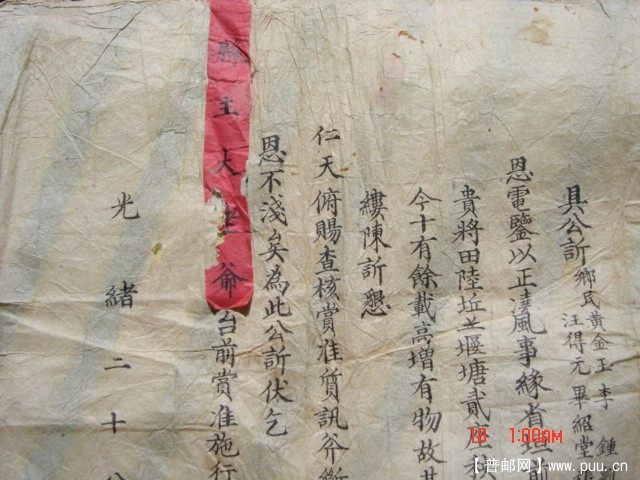 具公訴鄉民黃金玉李鍾
汪得元畢紹堂
恩電鑒以正淩風事緣省垣前
貴將田陸坵並堰塘貳座扶
今十有餘載高增有物故其
縷陳訴懇
仁天俯賜查核賞准質訊斧斷
恩不淺矣為此公訴伏乞
縣主大老爺台前賞准施行
光緒二十八
18 1:00AM
【普邮网】www.puu.cn